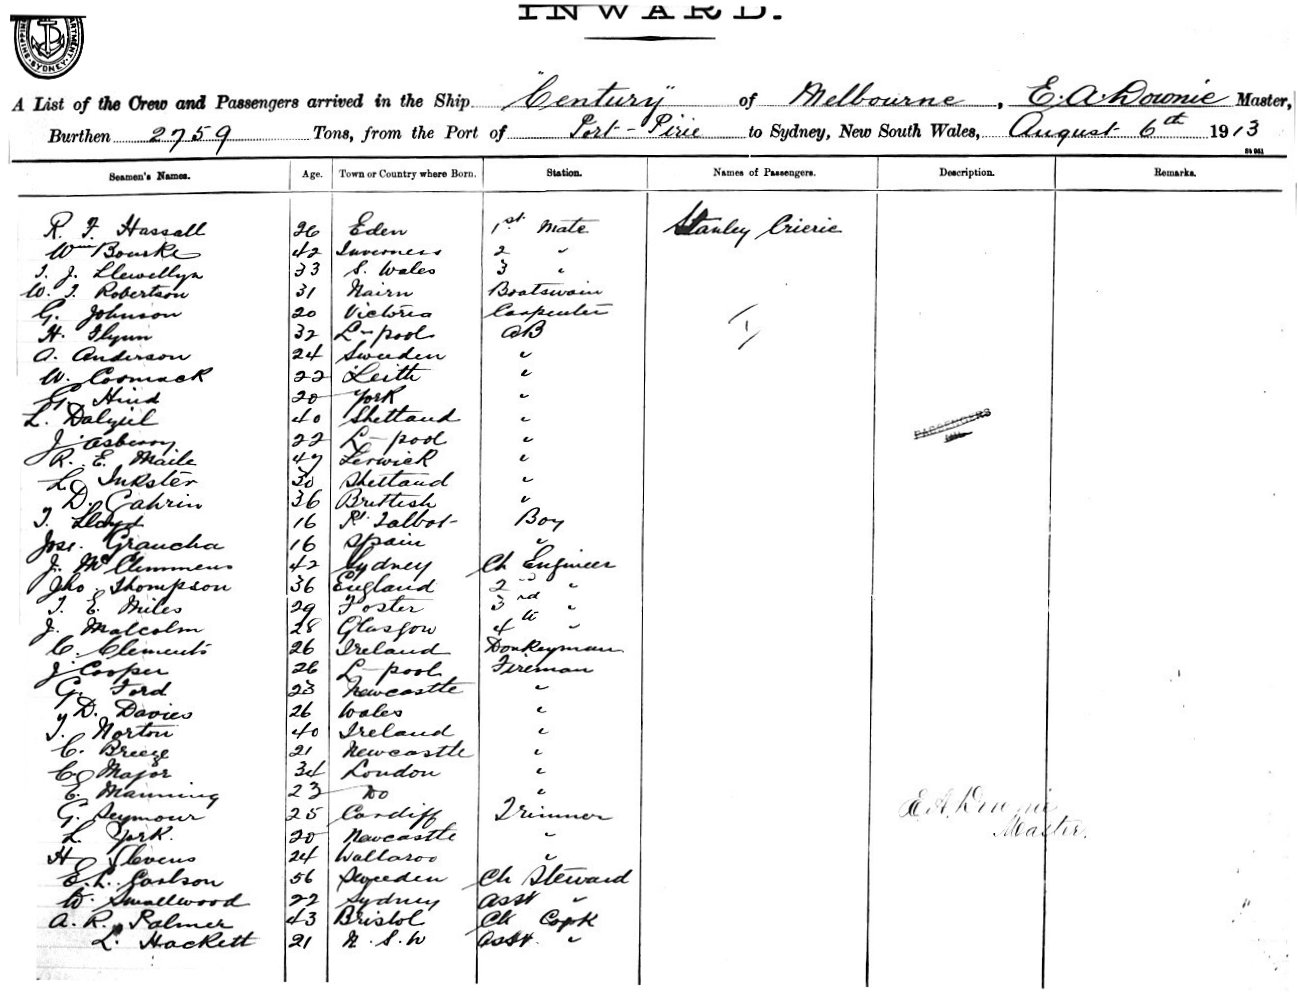 INWARD.
SHIPPING DEPARTMENT, SYDNEY
A List of the Crew and Passengers arrived in the Ship "Century" of Melbourne, E. A. Downie Master,
Burthen 2759 Tons, from the Port of Port-Pirie to Sydney, New South Wales, August 6th 1913
Seamen's Names. Age. Town or Country where Born. Station. Names of Passengers. Description. Remarks.
R. F. Hassall 26 Eden 1st Mate Stanley Crierie
Wm Bourke 42 Inverness 2 "
T. J. Llewellyn 33 S. Wales 3 "
W. J. Robertson 31 Nairn Boatswain
G. Johnson 20 Victoria Carpenter
H. Flynn 32 L-pool AB
A. Anderson 24 Sweden "
W. Cormack 22 Leith "
G. Hind 20 York "
L. Dalziel 40 Shetland "
J. Asberry 22 L-pool "
PASSENGERS
R. E. Maile 47 Lerwick "
L. Inkster 30 Shetland "
D. Cahrin 36 Brittish "
T. Lloyd 16 Pt Talbot Boy
Jose Graucha 16 Spain "
J. McClemmens 42 Sydney Ch Engineer
Jho. Thompson 36 England 2nd "
T. E. Miles 29 Foster 3rd "
J. Malcolm 28 Glasgow 4th "
C. Clements 26 Ireland Donkeyman
J Cooper 26 L-pool Fireman
G. Ford 23 Newcastle "
D. Davies 26 Wales "
J. Norton 40 Ireland "
C. Breeze 21 Newcastle "
C. Major 34 London "
E. Manning 23 Do "
G. Seymour 25 Cardiff Trimmer
E. A. Downie
Master.
L. York. 20 Newcastle "
H Slevens 24 Wallaroo "
E. L. Carlson 56 Sweeden Ch Steward
W. Smallwood 22 Sydney Asst "
A. R. Palmer 43 Bristol Ch Cook
L. Hackett 21 N.S.W Asst. "